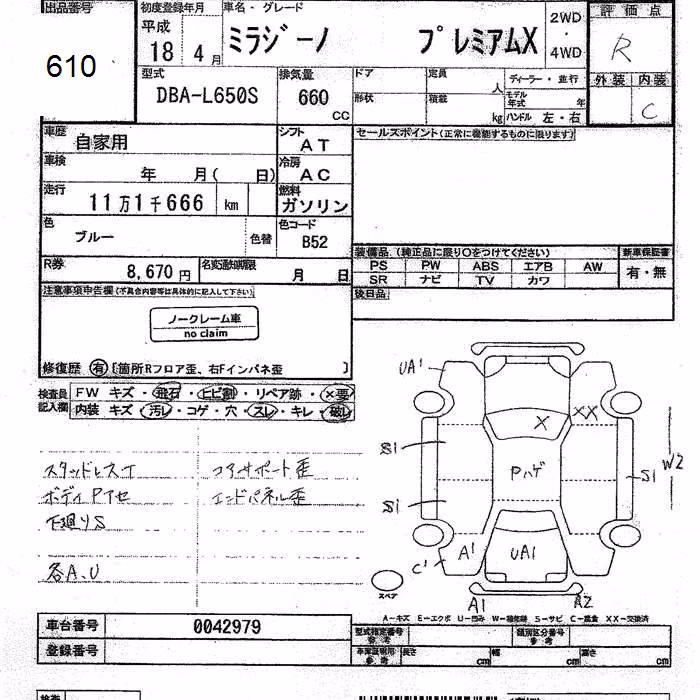 出品番号 初度登録年月 車名・グレード 評価点
610 平成 18 4月 ミラジーノ プレミアムX 2WD・4WD R
型式 排気量 ドア 定員 人 ディーラー・並行 外装 内装
DBA-L650S 660 CC 形状 積載 kg モデル年式 年 C
ハンドル 左・右
車歴 自家用 シフト AT セールスポイント(正常に機能するものに限ります)
車検 年 月( 日) 冷房 AC
走行 11万1千666 km 燃料 ガソリン
色 ブルー 色替 色コード B52
装備品(純正品に限り○をつけてください) 新車保証書
R券 8,670円 名変期限 月 日 PS PW ABS エアB AW 有・無
SR ナビ TV カワ
注意事項申告欄(不具合内容等は具体的に記入して下さい) 後日品
ノークレーム車
no claim
修復歴 有 [箇所Rフロア歪、右Fインパネ歪 ]
検査員記入欄 FW キズ・飛石・ヒビ割・リペア跡・×要
内装 キズ・汚レ・コゲ・穴・スレ・キレ・破レ
スタッドレスT コアサポート歪
ボディPアセ エンドパネル歪
下廻りS
各A、U
UA1
X XX
S1 Pハゲ S1 W2
S1
A1 UA1
C1
スペア A1 A2
A-キズ E-エクボ U-凹み W-補修跡 S-サビ C-腐食 XX-交換済
車台番号 0042979 型式指定番号 参考 類別区分番号 参考
登録番号 車庫証明用 参考 長さ cm 幅 cm 高さ cm
検査